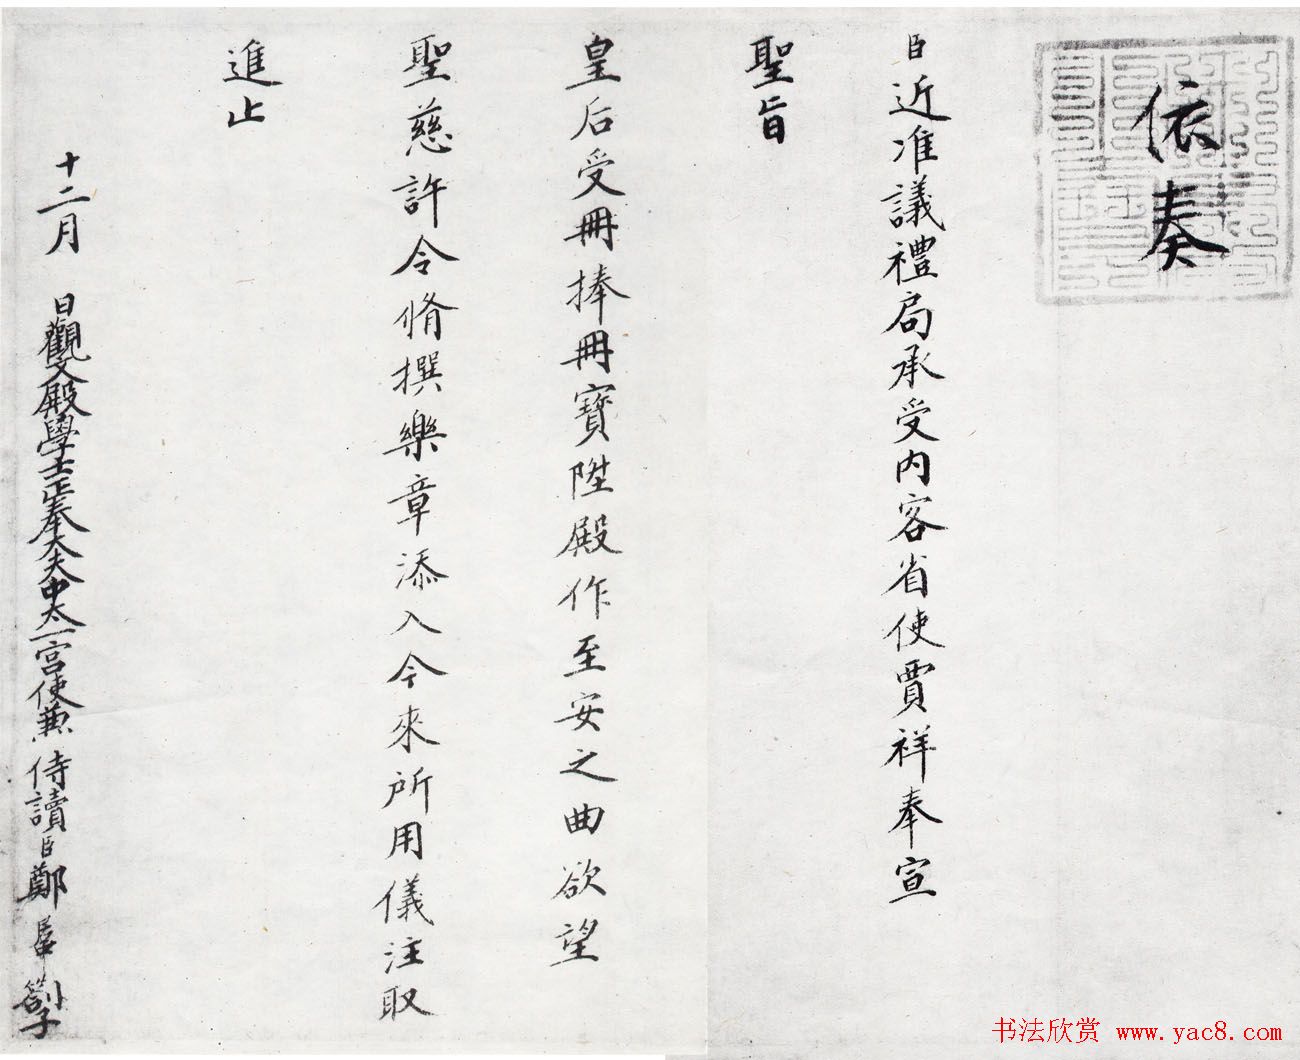 依奏
臣近准議禮局承受内客省使賈祥奉宣
聖旨
皇后受冊捧冊寶陞殿作至安之曲欲望
聖慈許令脩撰樂章添入今來所用儀注取
進止
十二月 日觀文殿學士正奉大夫中太一宮使兼侍讀臣鄭居中劄子
书法欣赏 www.yac8.com